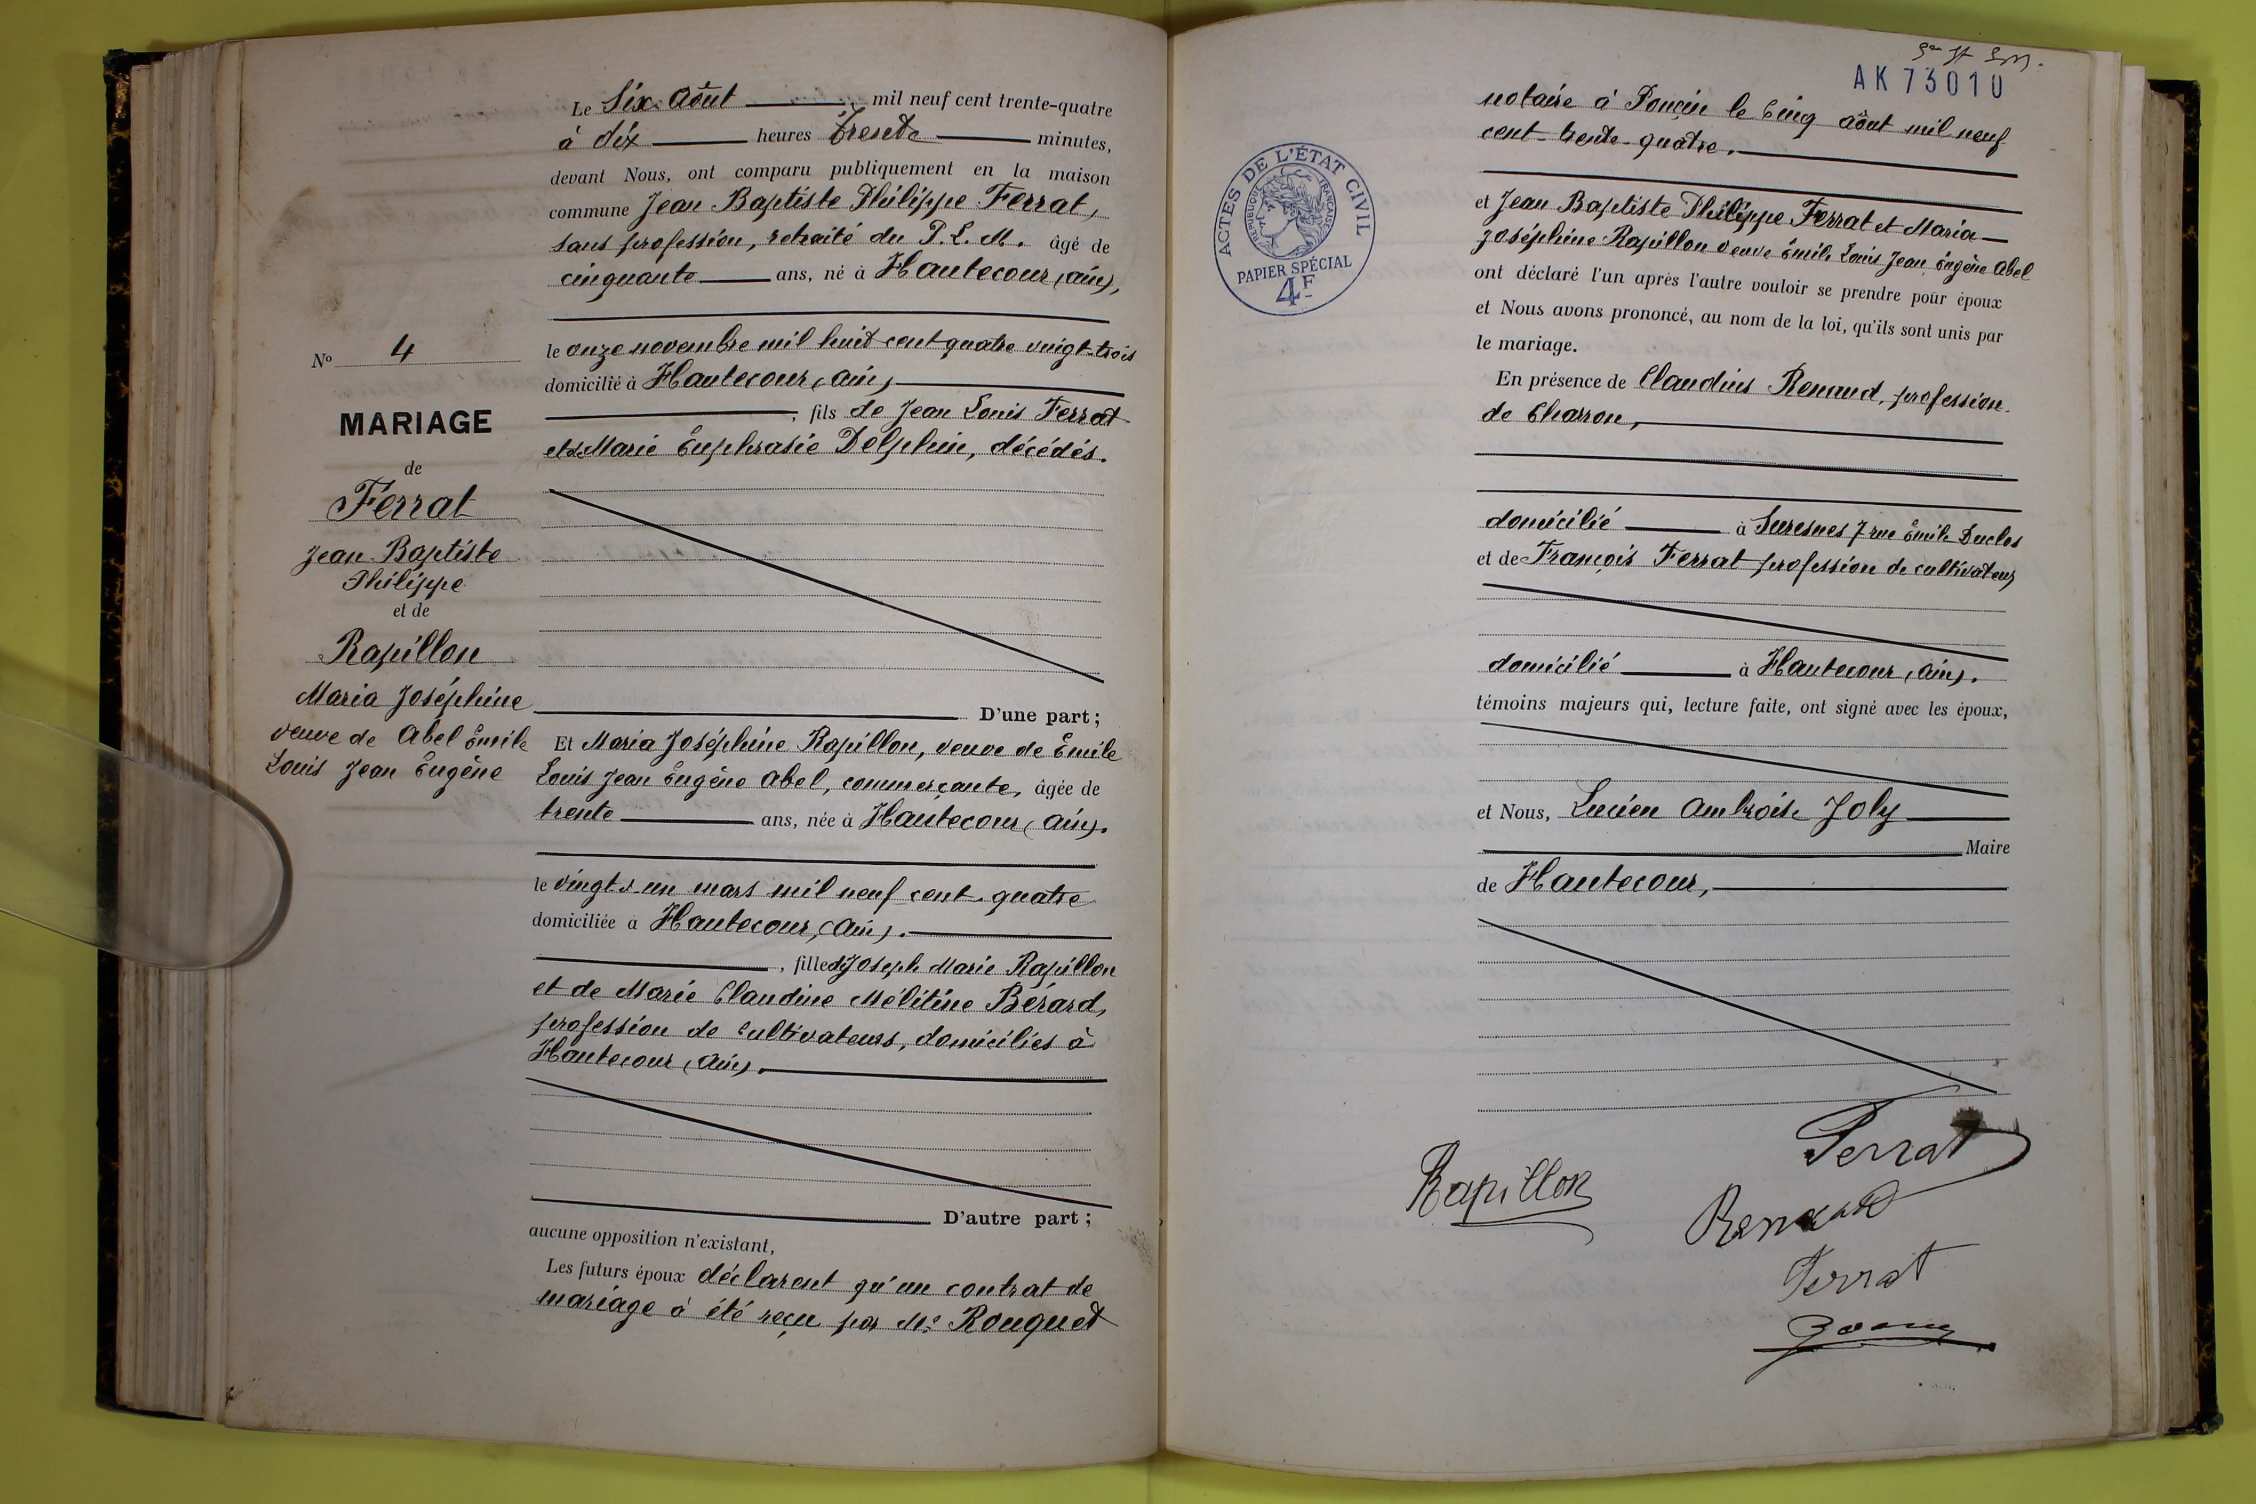 Le Six Août, mil neuf cent trente-quatre
à dix heures trente minutes,
devant Nous, ont comparu publiquement en la maison
commune Jean Baptiste Philippe Ferrat,
sans profession, retraité du P. L. M. âgé de
cinquante ans, né à Hautecour (Ain),
le onze novembre mil huit cent quatre vingt-trois
domicilié à Hautecour (Ain)
, fils de Jean Louis Ferrat
et de Marie Euphrasie Delphin, décédés.
N° 4
MARIAGE
de
Ferrat
Jean Baptiste
Philippe
et de
Rapillon
Maria Joséphine
veuve de Abel Émile
Louis Jean Eugène
D'une part ;
Et Maria Joséphine Rapillon, veuve de Émile
Louis Jean Eugène Abel, commerçante, âgée de
trente ans, née à Hautecour (Ain).
le vingt et un mars mil neuf cent quatre
domiciliée à Hautecour, (Ain).
, fille de Joseph Marie Rapillon
et de Marie Claudine Mélitine Bérard,
profession de cultivateurs, domiciliés à
Hautecour (Ain).
D'autre part ;
aucune opposition n'existant,
Les futurs époux déclarent qu'un contrat de
mariage à été reçu par Me Rouquet
AK 73010
notaire à Poncin le cinq août mil neuf
cent trente-quatre.
ACTES DE L'ÉTAT CIVIL
RÉPUBLIQUE FRANÇAISE
PAPIER SPÉCIAL
4F
et Jean Baptiste Philippe Ferrat et Maria
Joséphine Rapillon veuve Émile Louis Jean Eugène Abel
ont déclaré l'un après l'autre vouloir se prendre pour époux
et Nous avons prononcé, au nom de la loi, qu'ils sont unis par
le mariage.
En présence de Claudius Renaud, profession
de Charron,
domicilié à Suresnes 7 rue Émile Duclos
et de François Ferrat profession de cultivateur,
domicilié à Hautecour (Ain).
témoins majeurs qui, lecture faite, ont signé avec les époux,
et Nous, Lucien Ambroise Joly
Maire
de Hautecour,
Ferrat
Rapillon
Renaud
Ferrat